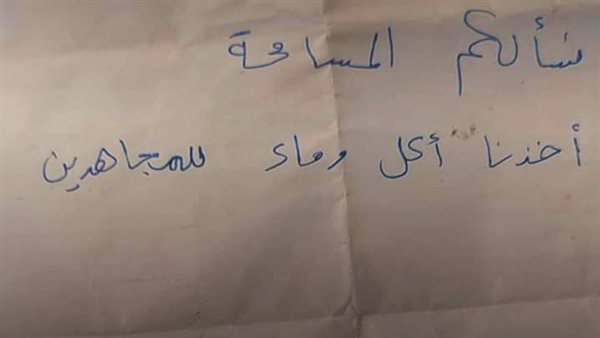 نسألكم المسامحة
أخذنا أكل وماء للمجاهدين